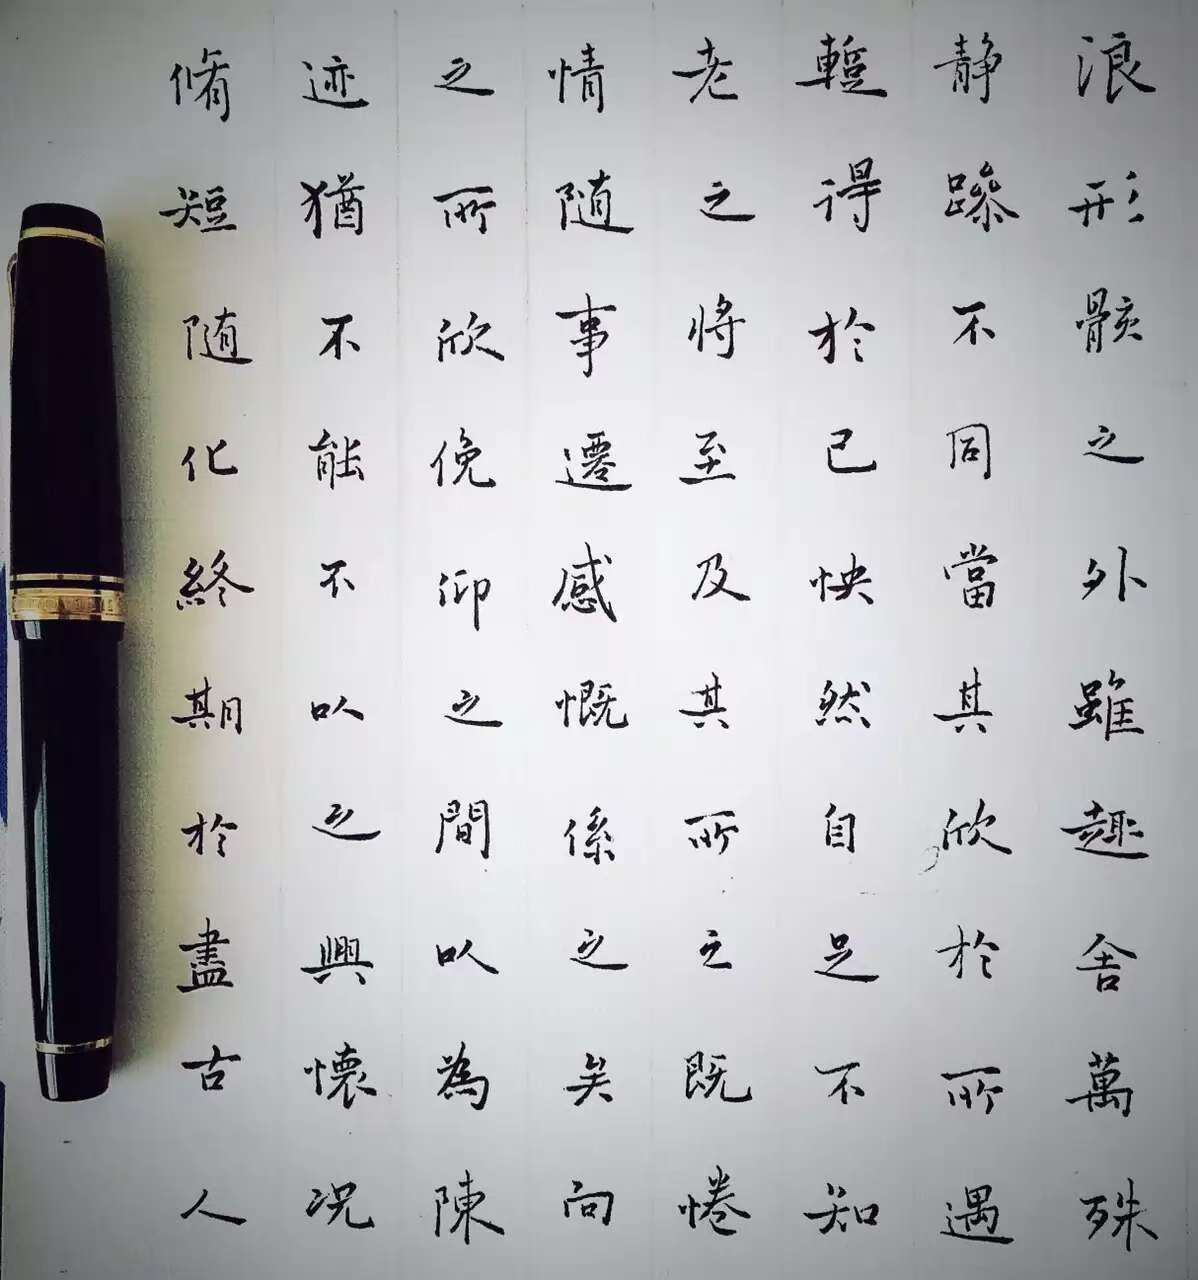 浪形骸之外雖趣舍萬殊
静躁不同當其欣於所遇
暫得於己怏然自足不知
老之將至及其所之既惓
情随事遷感慨係之矣向
之所欣俛仰之間以為陳
迹猶不能不以之興懷况
脩短随化終期於盡古人